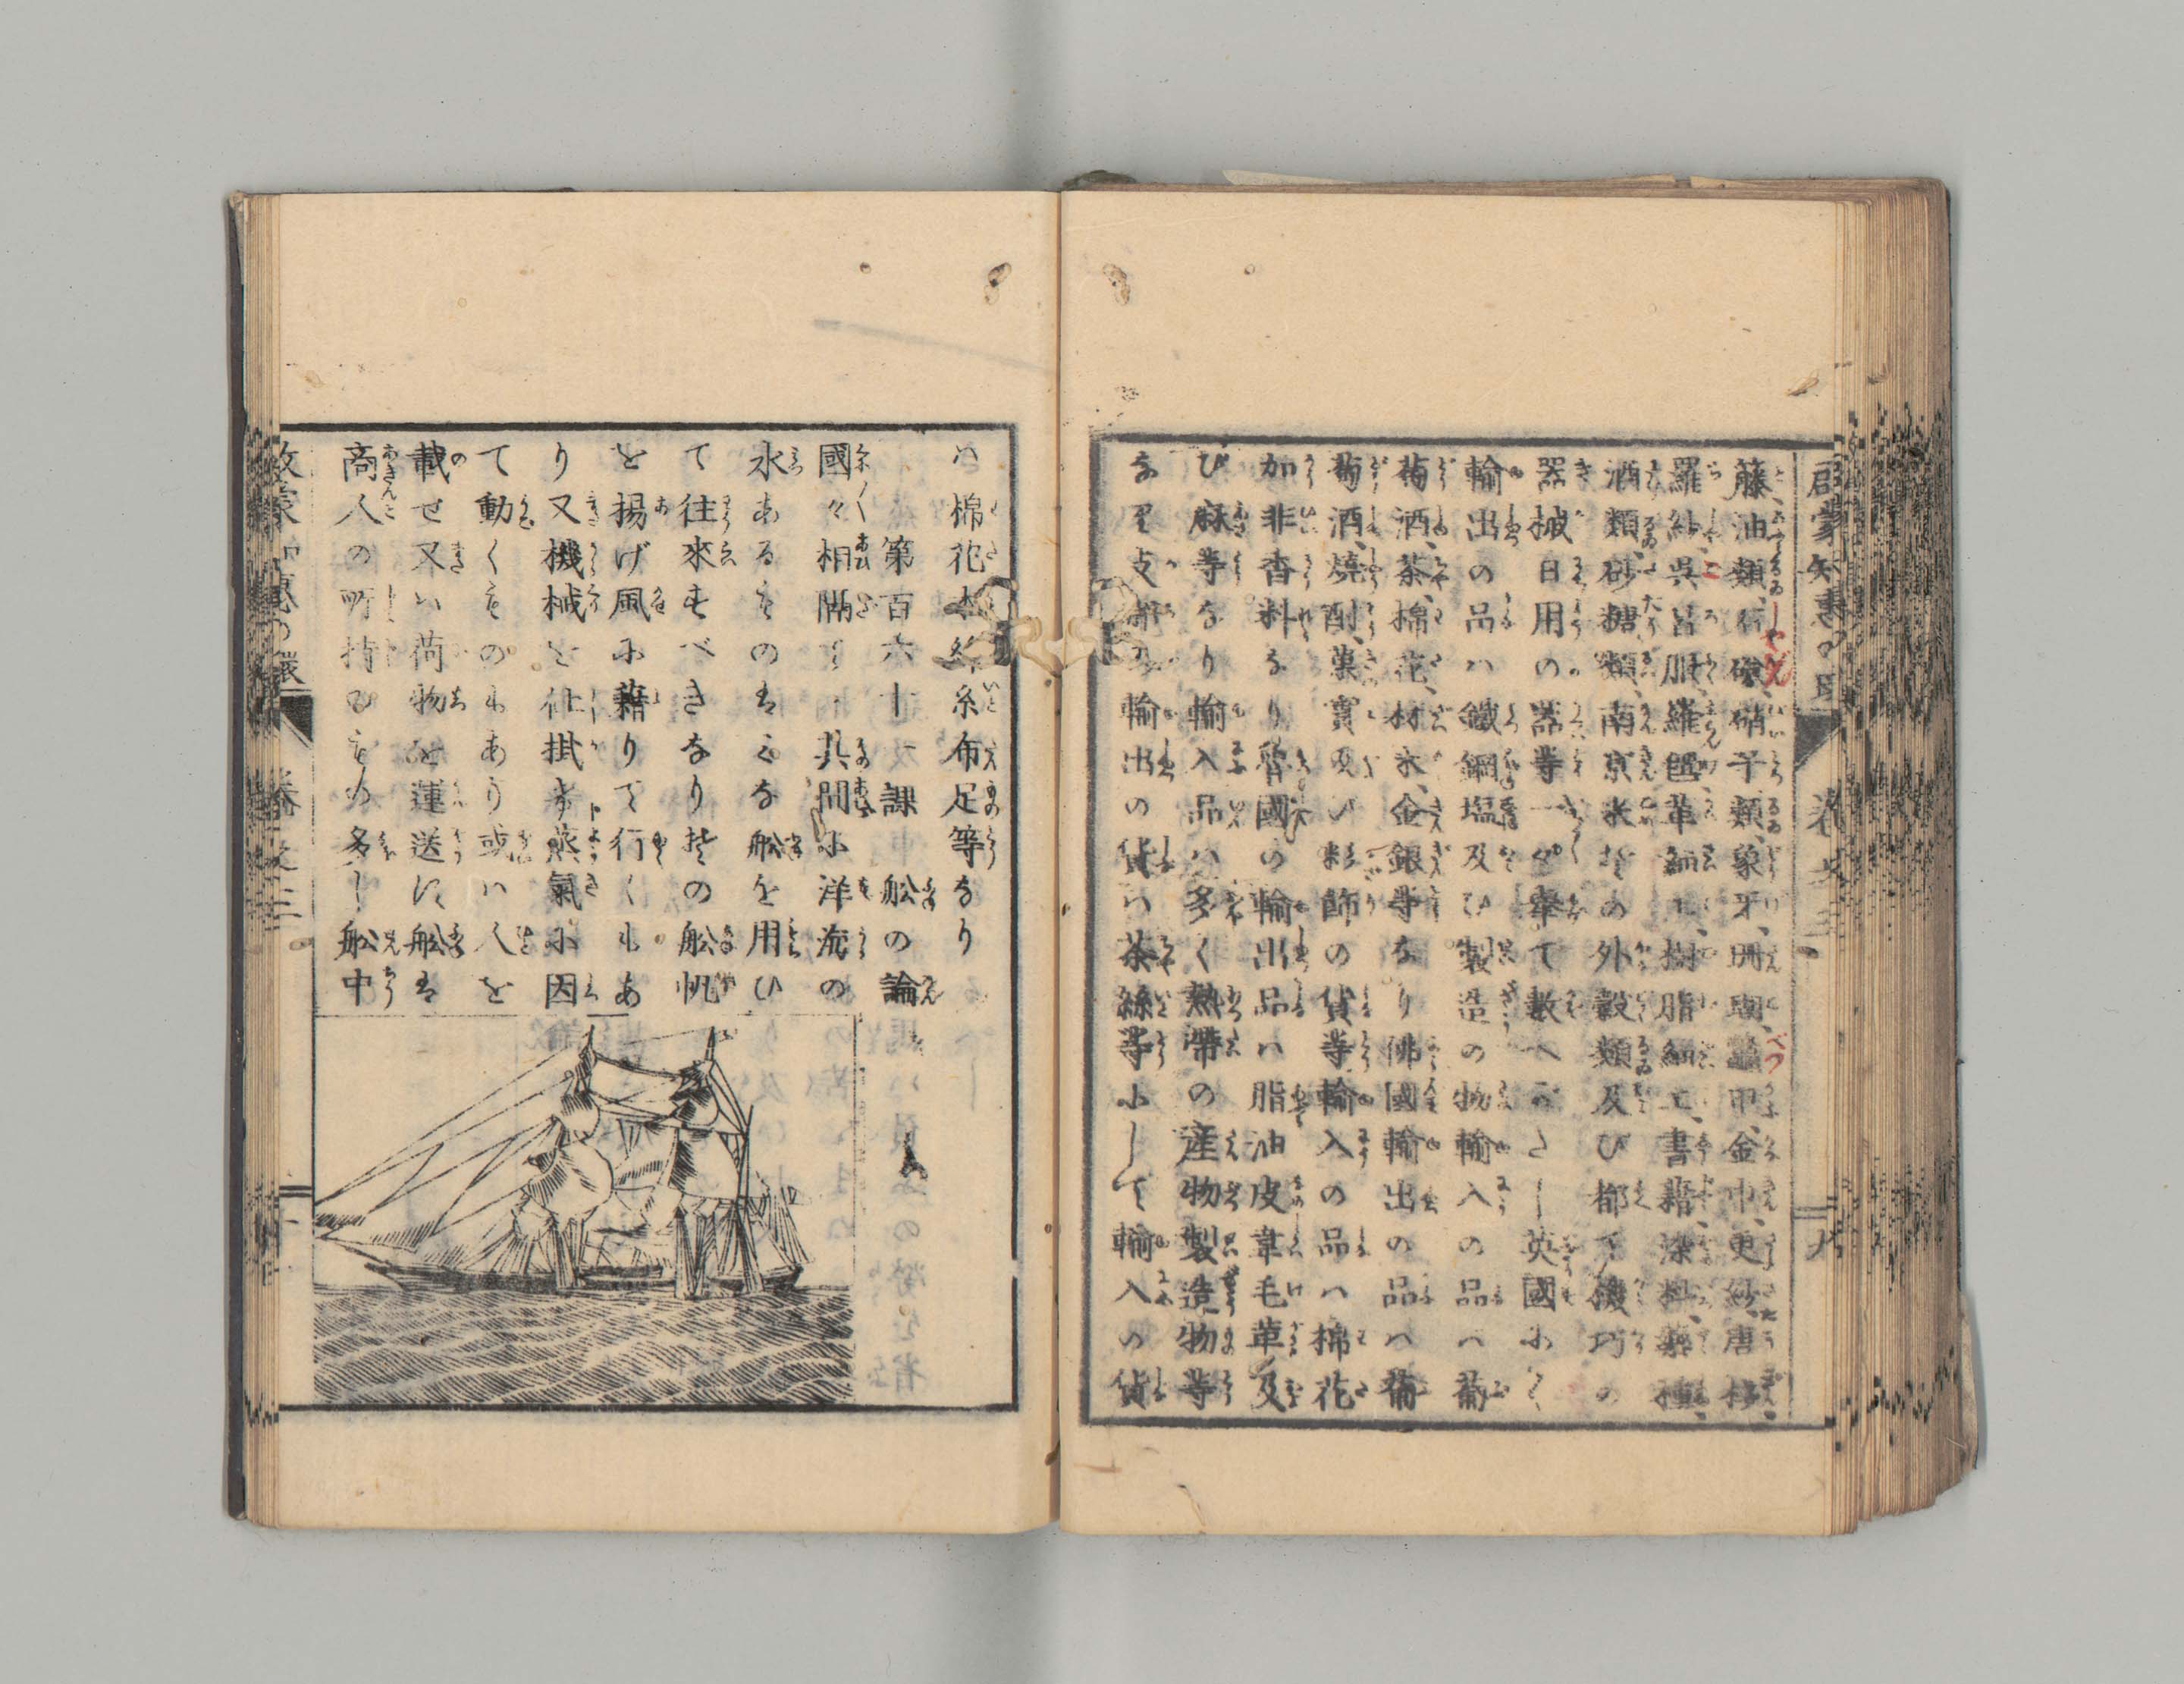 啟蒙知惠の環 卷之三 九
藤、油類、石礆、硝子類、象牙、珊瑚、鼈甲、金巾、更紗、唐棧、
羅紗、呉呂服羅、氈、革細工、樹脂細工、書籍、染料、藥種、
酒類、砂糖類、南京米其の外穀類及び都て機巧の
器械日用の器等一々舉て數へがたし英國にて
輸出の品ハ鐵鋼塩及び製造の物輸入の品ハ葡
萄酒、茶、棉花、材木、金銀等なり佛國輸出の品ハ葡
萄酒、燒酎、菓實及び粉飾の貨等輸入の品ハ棉花
加非香料なり魯國の輸出品ハ脂油皮韋毛革及
び麻等なり輸入品ハ多く熱帶の產物製造物等
なり支那の輸出の貨ハ茶絲等にして輸入の貨
ハ棉花木綿糸布疋等なり
第百六十一課 舩の論
國々相隔り其間に洋海の
水あるものはみな舩を用ひ
て往來すべきなり其の舩帆
を揚げ風に藉りて行くもあ
り又機械を仕掛け蒸氣に因
て動くものもあり或ハ人を
載せ又ハ荷物を運送に舩は
商人の所持のもの多し舩中
啟蒙知惠の環 卷之三 十